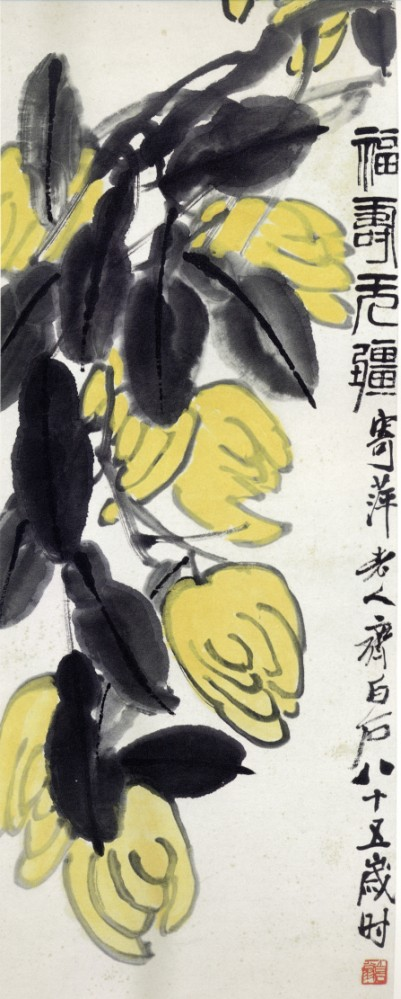 福壽无疆
寄萍老人齊白石八十五歲时